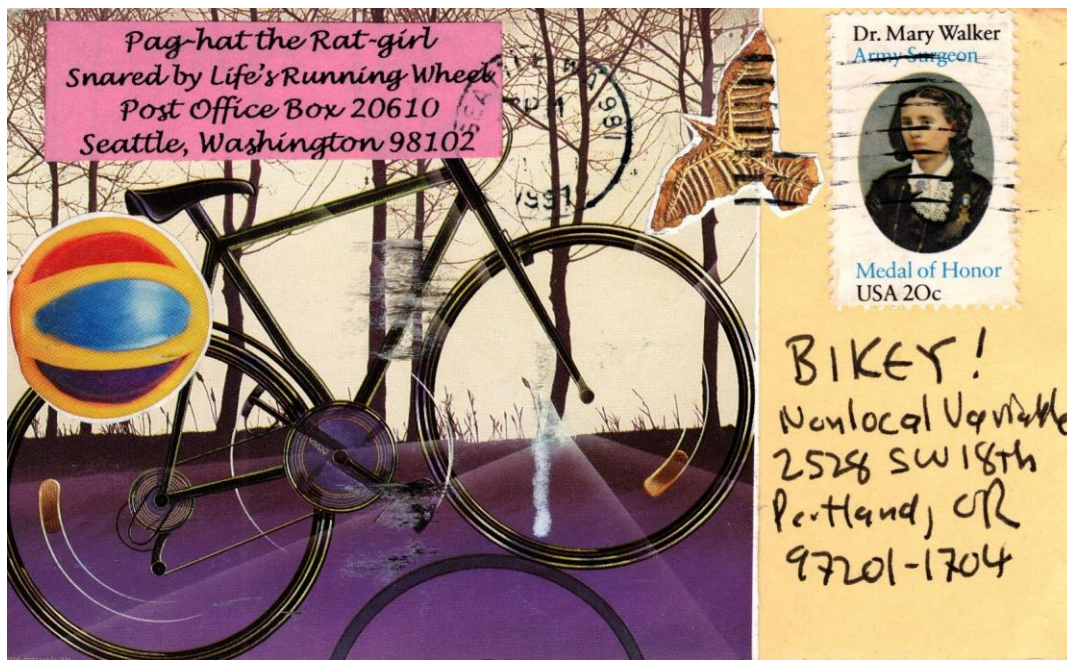 Pag-hat the Rat-girl
Snared by Life's Running Wheel
Post Office Box 20610
Seattle, Washington 98102
SEATTLE WA 981
1997
Dr. Mary Walker
Army Surgeon
Medal of Honor
USA 20c
BIKEY!
Nonlocal Variable
2528 SW 18th
Portland, OR
97201-1704